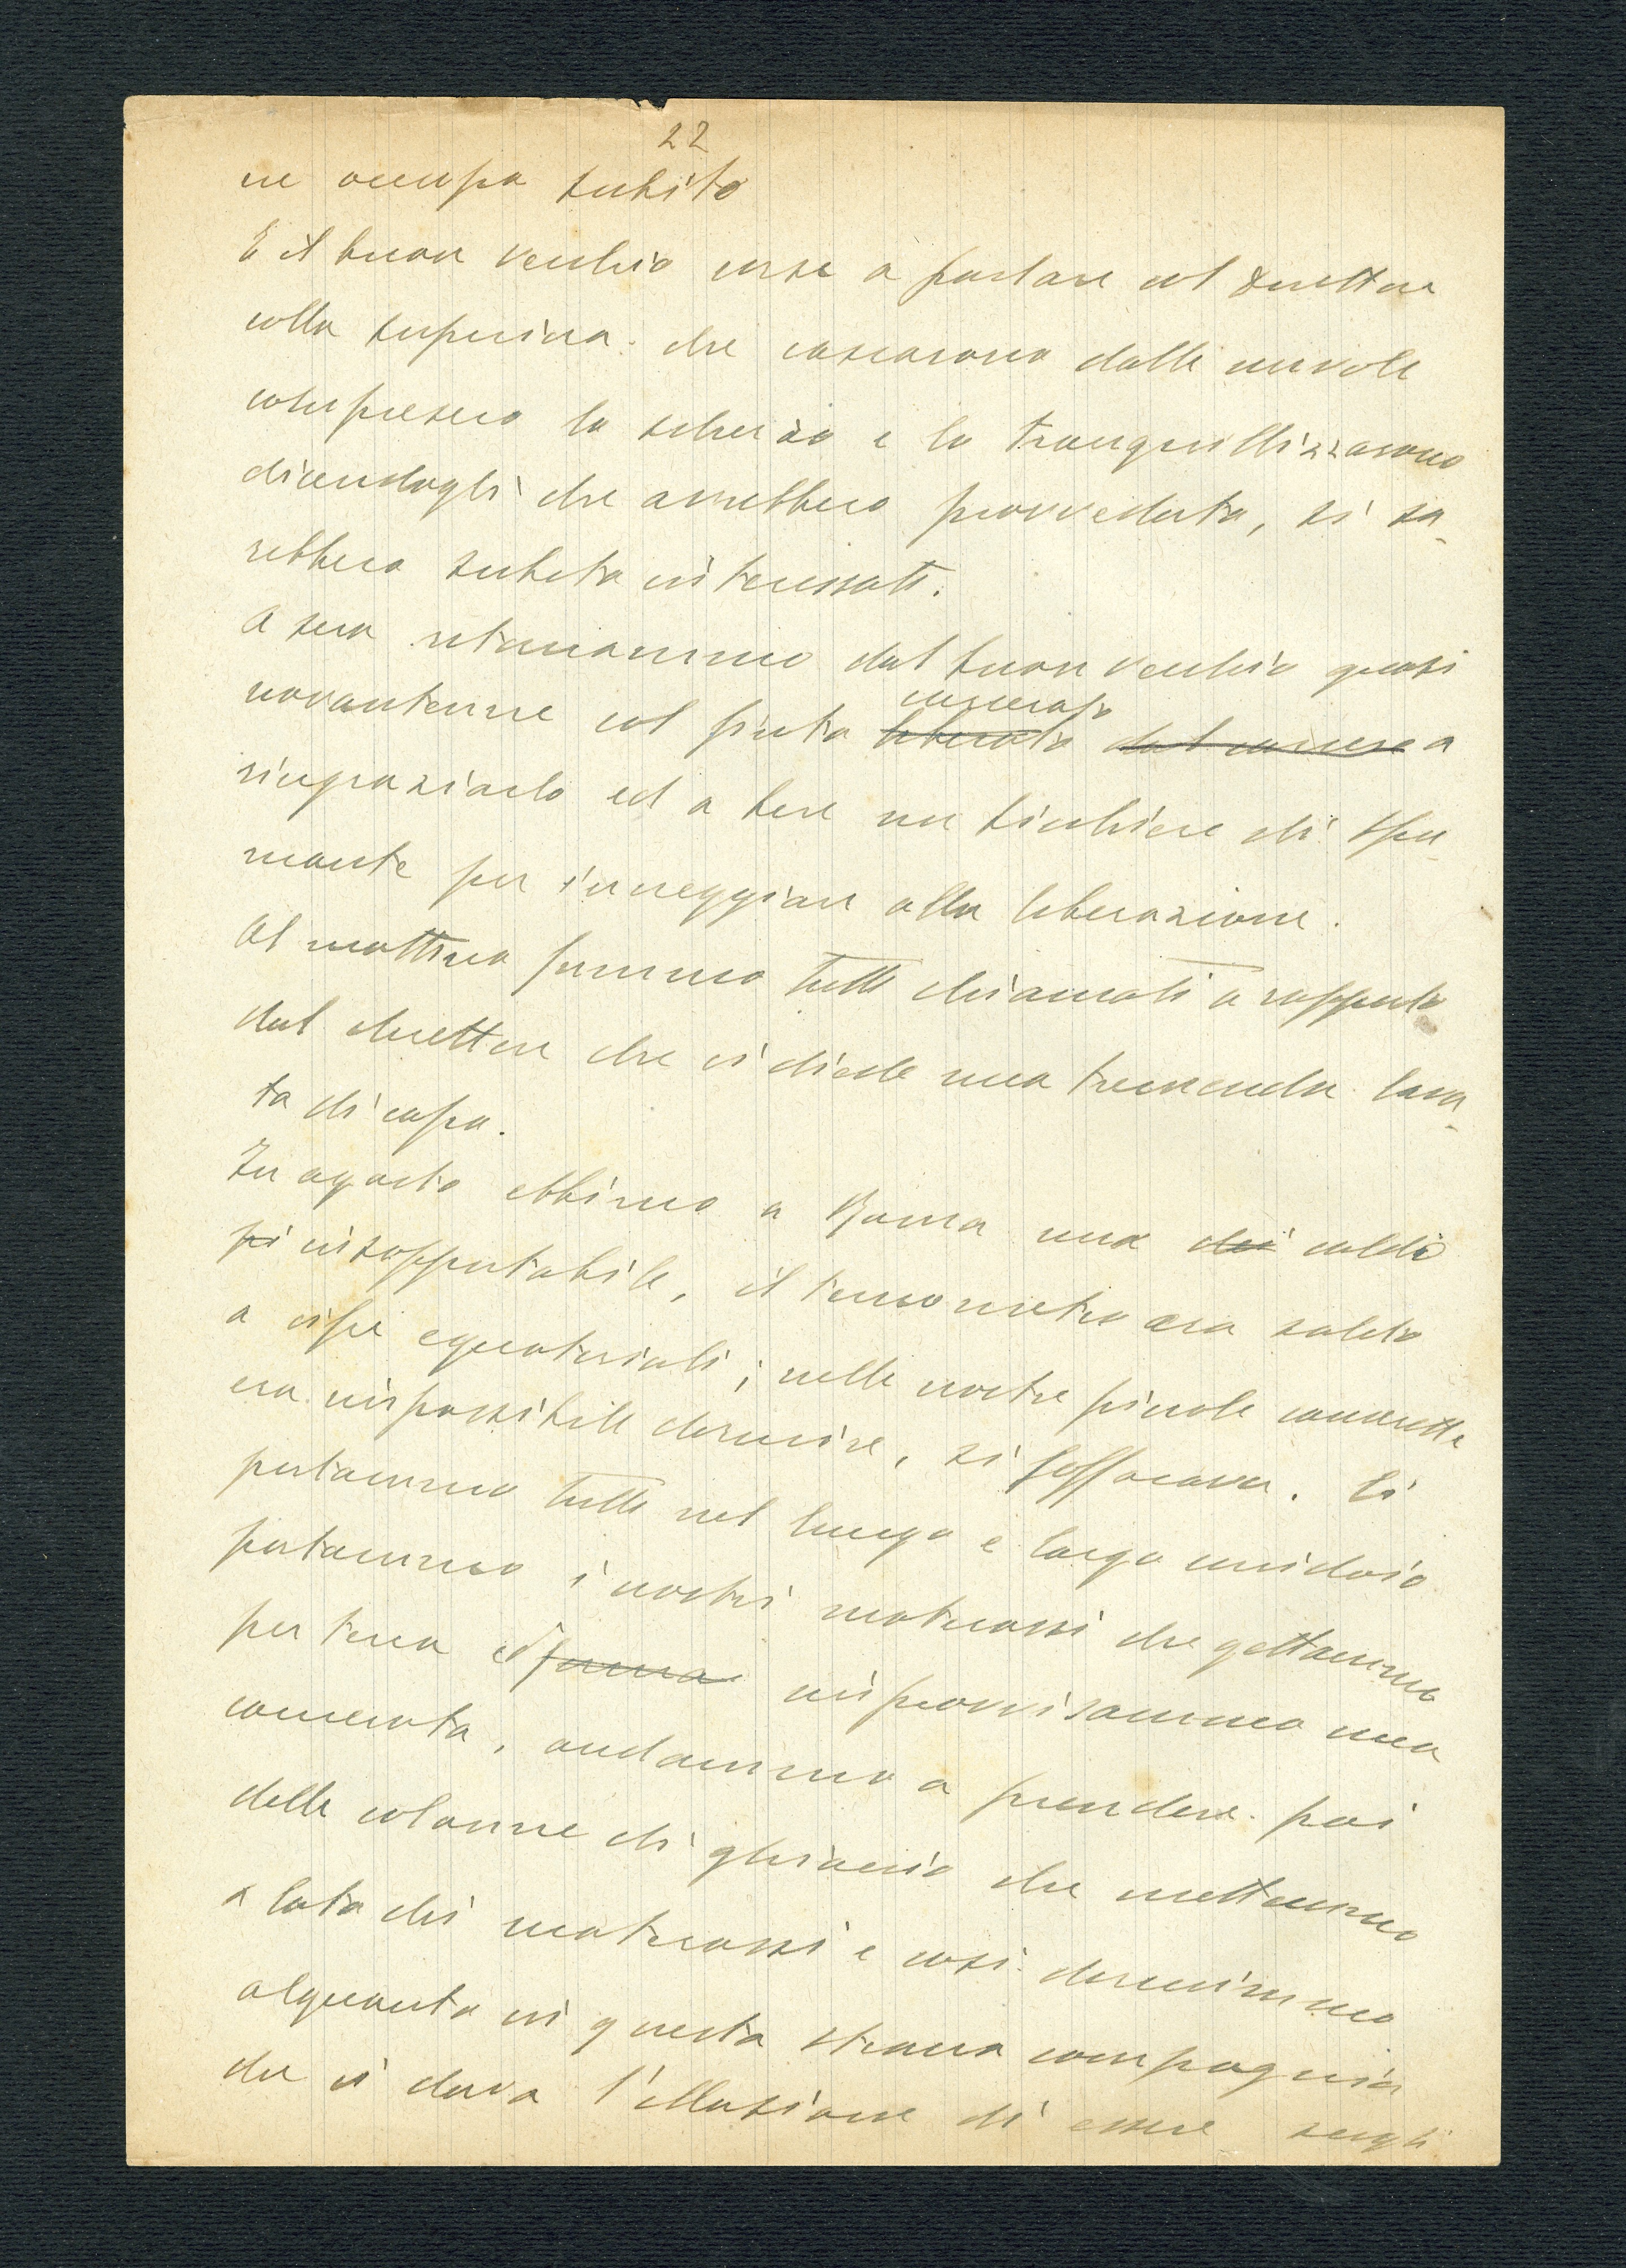 22
ne occupa subito
E il buon vecchio corse a parlare col direttore
colla superiora. che cascarono dalle nuvole
compresero lo scherzo e lo tranquillizzarono
dicendogli che avrebbero provveduto, si sa-
rebbero subito interessati.
A sera ritornammo dal buon vecchio quasi
novantenne col finto liberato dal carcere a
carcerato
ringraziarlo ed a bere un bicchiere di spu-
mante per inneggiare alla liberazione.
Al mattino fummo tutti chiamati a rapporto
dal direttore che ci diede una tremenda lava-
ta di capo.
In agosto ebbimo a Roma una dei caldo
pi insopportabile, il termometro era salito
a cifre equatoriali; nelle nostre piccole camerette
era impossibile dormire, si soffocava. Ci
portammo tutti nel lungo e largo corridoio
portammo i nostri materassi che gettammo
per terra ed improvvisammo una
camerata, andammo a prendere poi
delle colonne di ghiaccio che mettemmo
a lato dei materassi e così dormimmo
alquanto in questa strana compagnia
che ci dava l'illusione di essere sugli